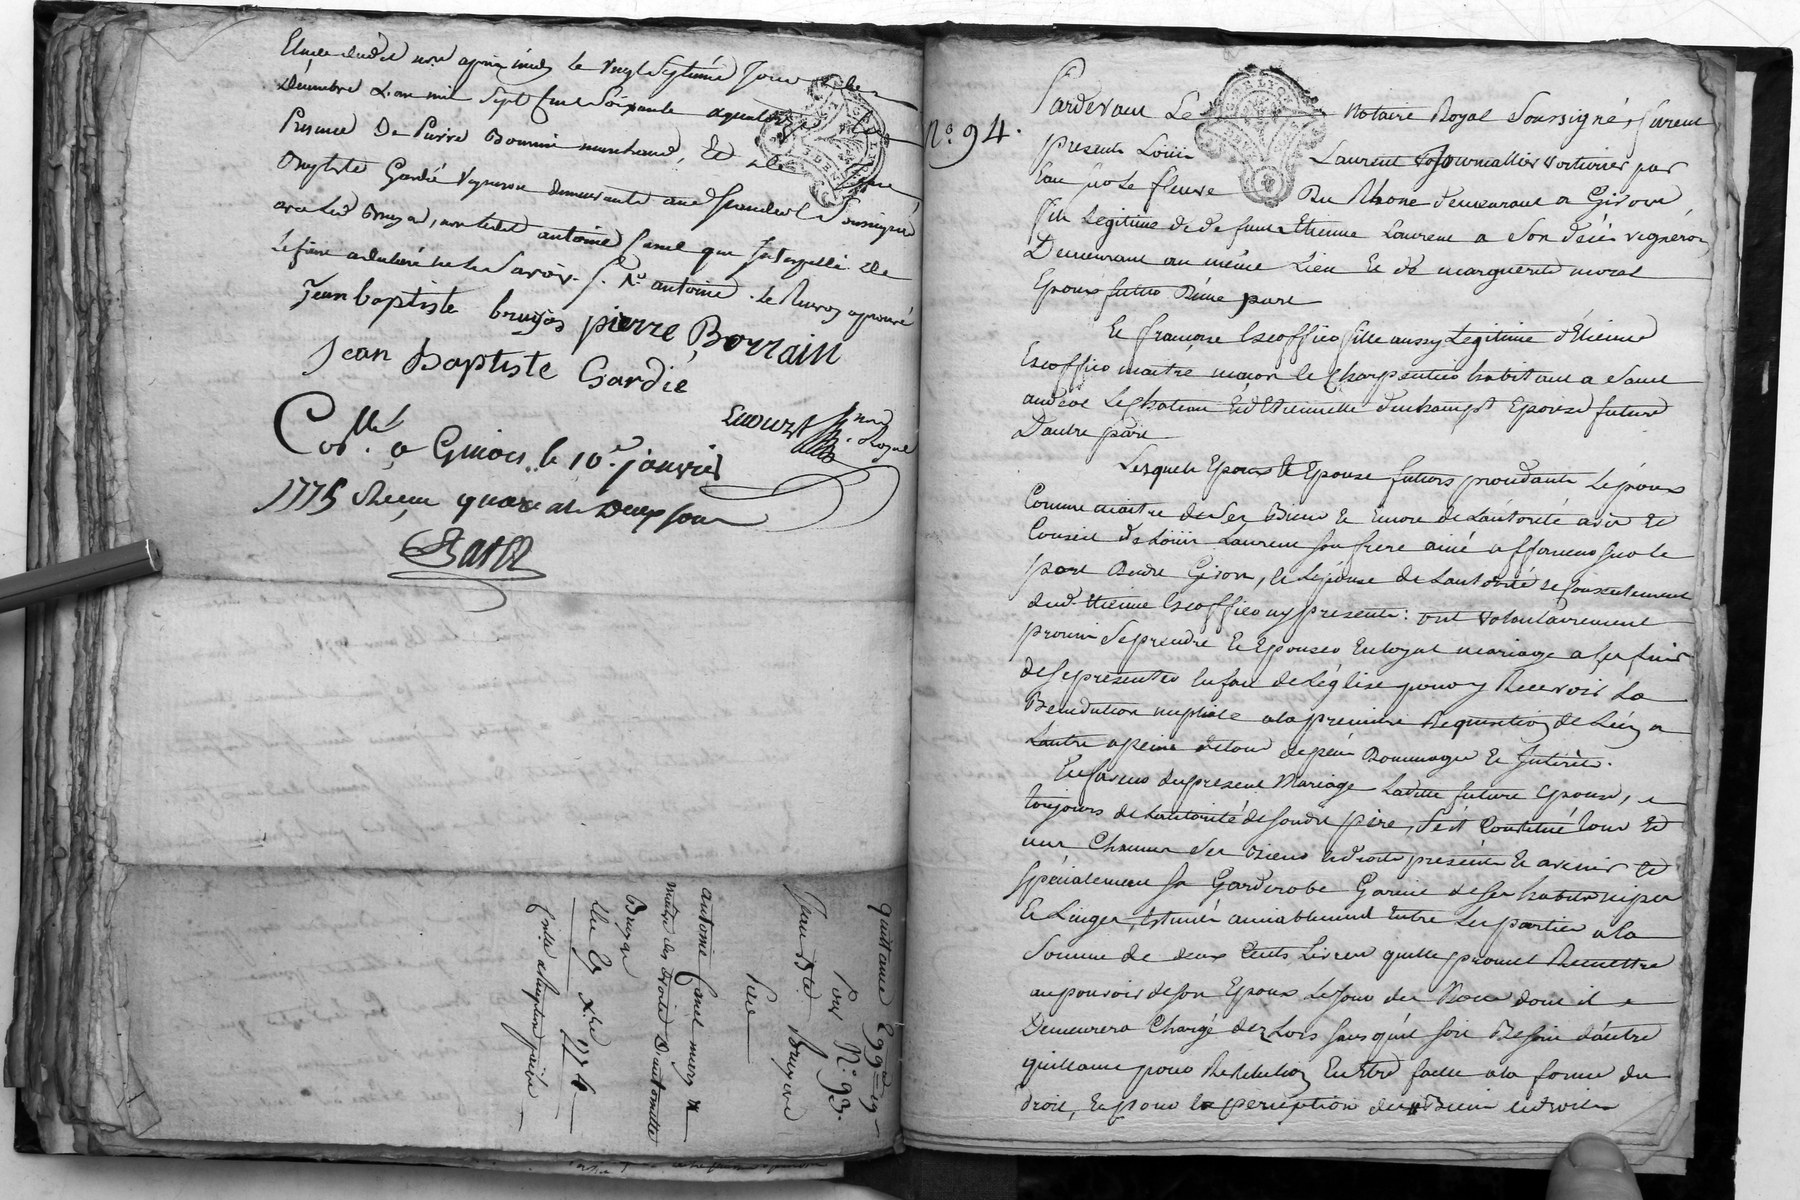 Etude dudit no.re apres midy le vingt Septieme Jour de
Decembre L'an mil Sept Cent Soixante quatorze
Presence De Pierre Bourrin marchand, Et de Jean
Baptiste Gardié vigneron demeurants aud
avec led Bruyas, non ledit antoine Canel que Interpellé de
Le faire a declaré ne le Savoir. S. St antoine. le Renvoy aprouvé
Jean baptiste bruyas pierre Borrain
Jean Baptiste Gardié
N.re Royal
Co.llé a Givors le 10.e janvier
1775 Receu quatre deux sous
quittance
Pour N.o 93.
Jean B.te Bruyas
Pere
antoine Canel
Bruyas
Du 27 X.bre 1774
N.o 94.
Pardevant Le Notaire Royal Soussigné, furent
presents Loüis Laurent Journallier voiturier par
Eau sur le fleuve Du Rhone demeurant a Givors
fils Legitime de defunt Etienne Laurent a Son décés vigneron
Demeurant au même Lieu Et de marguerite morel
Epoux futur D'une part
Et françoise Escoffier fille aussy Legitime d'Etienne
Escoffier maitre maçon Et Charpentier habitant a Saint
andeol Le Chateau Et d'Etiennette deschamps Epouse future
D'autre part
Lesquels Epoux Et Epouse futurs procedants Lépoux
Comme maitre de Ses Biens Et Encore de Lautorité avis Et
Conseil de Loüis Laurent Son frere ainé affaneur sur le
port Dudit Givors, Et Lépouse de Lautorité Et Consentement
dud. Etienne Escoffier icy present: ont volontairement
promis Se prendre Et Epouser En loyal mariage a Ses fins
de Se presenter En face de L'église pour y Recevoir La
Benediction nuptiale a la premiere Requisition de L'un a
Lautre a peine de tous depens Dommages Et Interêts.
En faveur du present Mariage Ladite future Epouse,
toujours de Lautorité de Sondit pere, S'est Constitué tous Et
uns Chacuns Ses Biens Et droits présents Et avenir Et
Specialement Sa Garderobe Garnie de Ses habits nipes
Et Linges, Estimés amiablement Entre Les parties a la
Somme de deux Cents Livres qu'elle promet Remettre
au pouvoir de Son Epoux Le Jour des Noces dont il
Demeurera Chargé dez Lors Sans qu'il Soit Besoin d'autre
quittance pour Restitution En Etre faitte a la forme du
droit, Et pour la perception des Biens Et droits